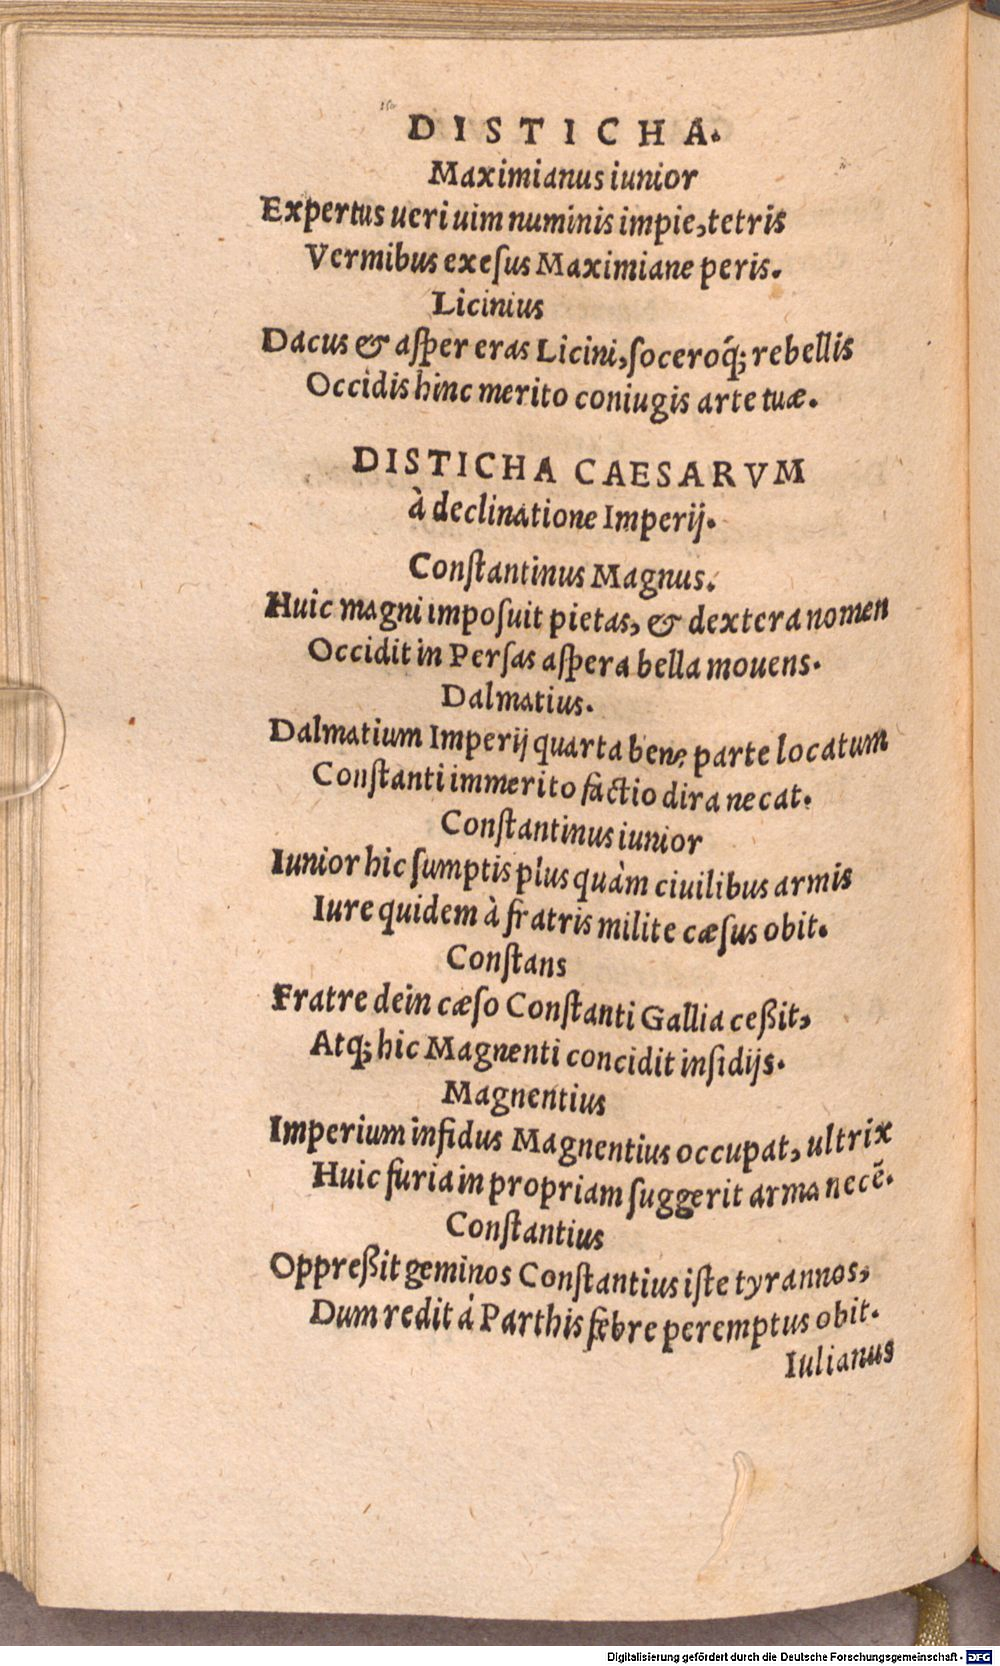 DISTICHA.
Maximianus iunior
Expertus ueri uim numinis impie, tetris
Vermibus exeſus Maximiane peris.
Licinius
Dacus & aſper eras Licini, ſoceroq́; rebellis
Occidis hinc merito coniugis arte tuæ.
DISTICHA CAESARVM
à declinatione Imperij.
Conſtantinus Magnus.
Huic magni impoſuit pietas, & dextera nomen
Occidit in Perſas aſpera bella mouens.
Dalmatius.
Dalmatium Imperij quarta bene parte locatum
Conſtanti immerito factio dira necat.
Conſtantinus iunior
Iunior hic ſumptis plus quàm ciuilibus armis
Iure quidem à fratris milite cæſus obit.
Conſtans
Fratre dein cæſo Conſtanti Gallia ceßit,
Atq; hic Magnenti concidit inſidijs.
Magnentius
Imperium infidus Magnentius occupat, ultrix
Huic furia in propriam ſuggerit arma necē.
Conſtantius
Oppreßit geminos Conſtantius iſte tyrannos,
Dum redit à Parthis febre peremptus obit.
Iulianus
Digitalisierung gefördert durch die Deutsche Forschungsgemeinschaft - DFG